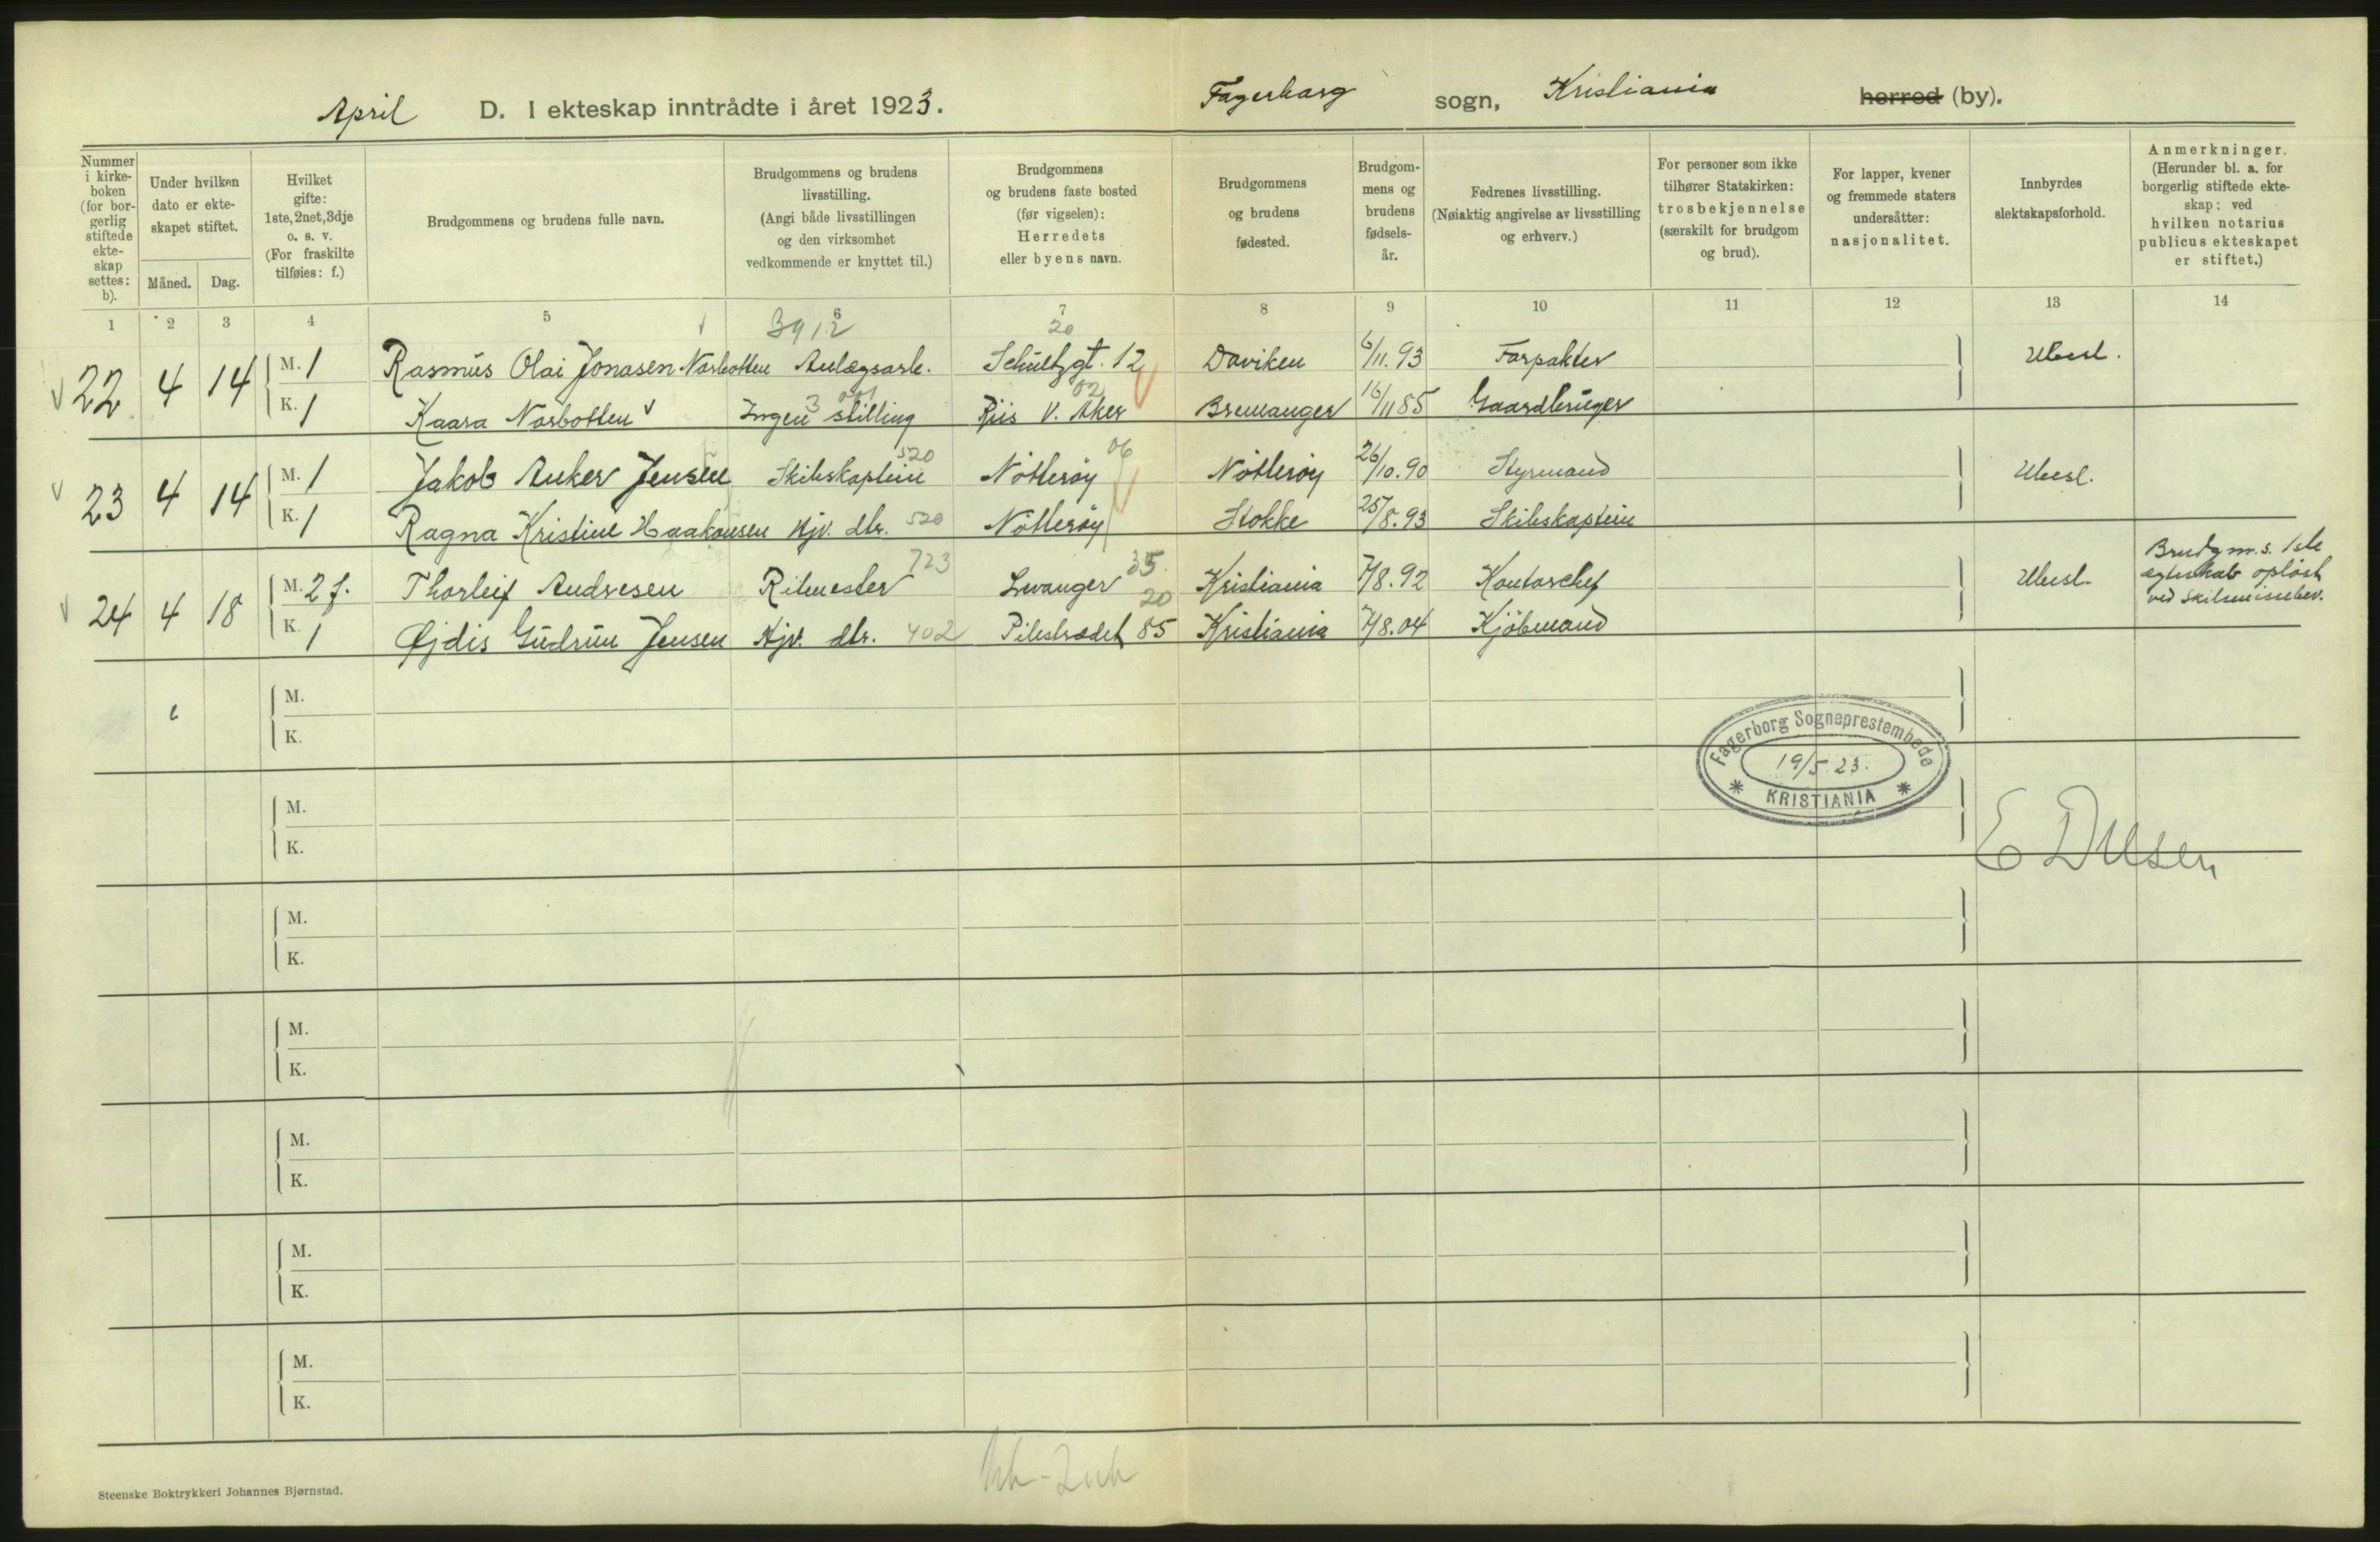 April D. I ekteskap inntrådte i året 1923. Fagerborg sogn, Kristiania herred (by).
Nummer i kirkeboken (for borgerlig stiftede ekteskap settes: b).
Under hvilken dato er ekteskapet stiftet.
Måned. Dag.
Hvilket gifte: 1ste, 2net, 3dje o. s. v. (For fraskilte tilføies: f.)
Brudgommens og brudens fulle navn.
Brudgommens og brudens livsstilling. (Angi både livsstillingen og den virksomhet vedkommende er knyttet til.)
Brudgommens og brudens faste bosted (før vigselen): Herredets eller byens navn.
Brudgommens og brudens fødested.
Brudgommens og brudens fødselsår.
Fedrenes livsstilling. (Nøiaktig angivelse av livsstilling og erhverv.)
For personer som ikke tilhører Statskirken: trosbekjennelse (særskilt for brudgom og brud).
For lapper, kvener og fremmede staters undersåtter: nasjonalitet.
Innbyrdes slektskapsforhold.
Anmerkninger. (Herunder bl. a. for borgerlig stiftede ekteskap: ved hvilken notarius publicus ekteskapet er stiftet.)
1 2 3 4 5 6 7 8 9 10 11 12 13 14
3912 20
22 4 14 M. 1 Rasmus Olai Jonasen Norbotten Anlægsarb. Schultzgt. 12 Daviken 6/11.93 Forpakter Ubesl.
02
K. 1 Kaara Norbotten Ingen stilling Riis V. Aker Bremanger 16/11 85 Gaardbruger
520 06
23 4 14 M. 1 Jakob Anker Jensen Skibskaptein Nøtterøy Nøtterøy 26/10.90 Styrmand Ubesl.
K. 1 Ragna Kristine Haakonsen Hjv. dtr. 520 Nøtterøy Stokke 25/8.93 Skibskaptein
723 35
24 4 18 M. 2 f. Thorleif Andresen Ritmester Levanger Kristiania 7/8.92 Kontorchef Ubesl. Brudgm.s. 1ste egteskab opløst ved skilsmissebev.
20
K. 1 Øjdis Gudrun Jensen Hjv. dtr. 402 Pilestrædet 85 Kristiania 7/8.04 Kjøbmand
M.
K.
Fagerborg Sogneprestembede
19/5.23.
KRISTIANIA
M.
K.
M.
K.
M.
K.
M.
K.
M.
K.
M.
K.
Steenske Boktrykkeri Johannes Bjørnstad.